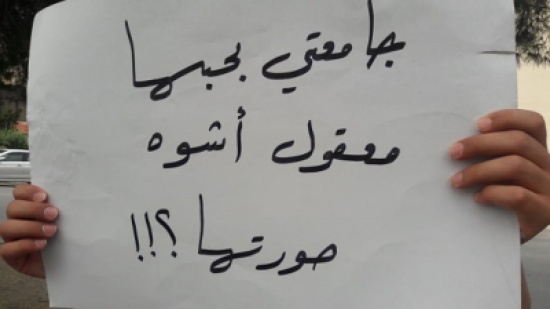 جامعتي بحبها
معقول أشوه
صورتها ؟!!!